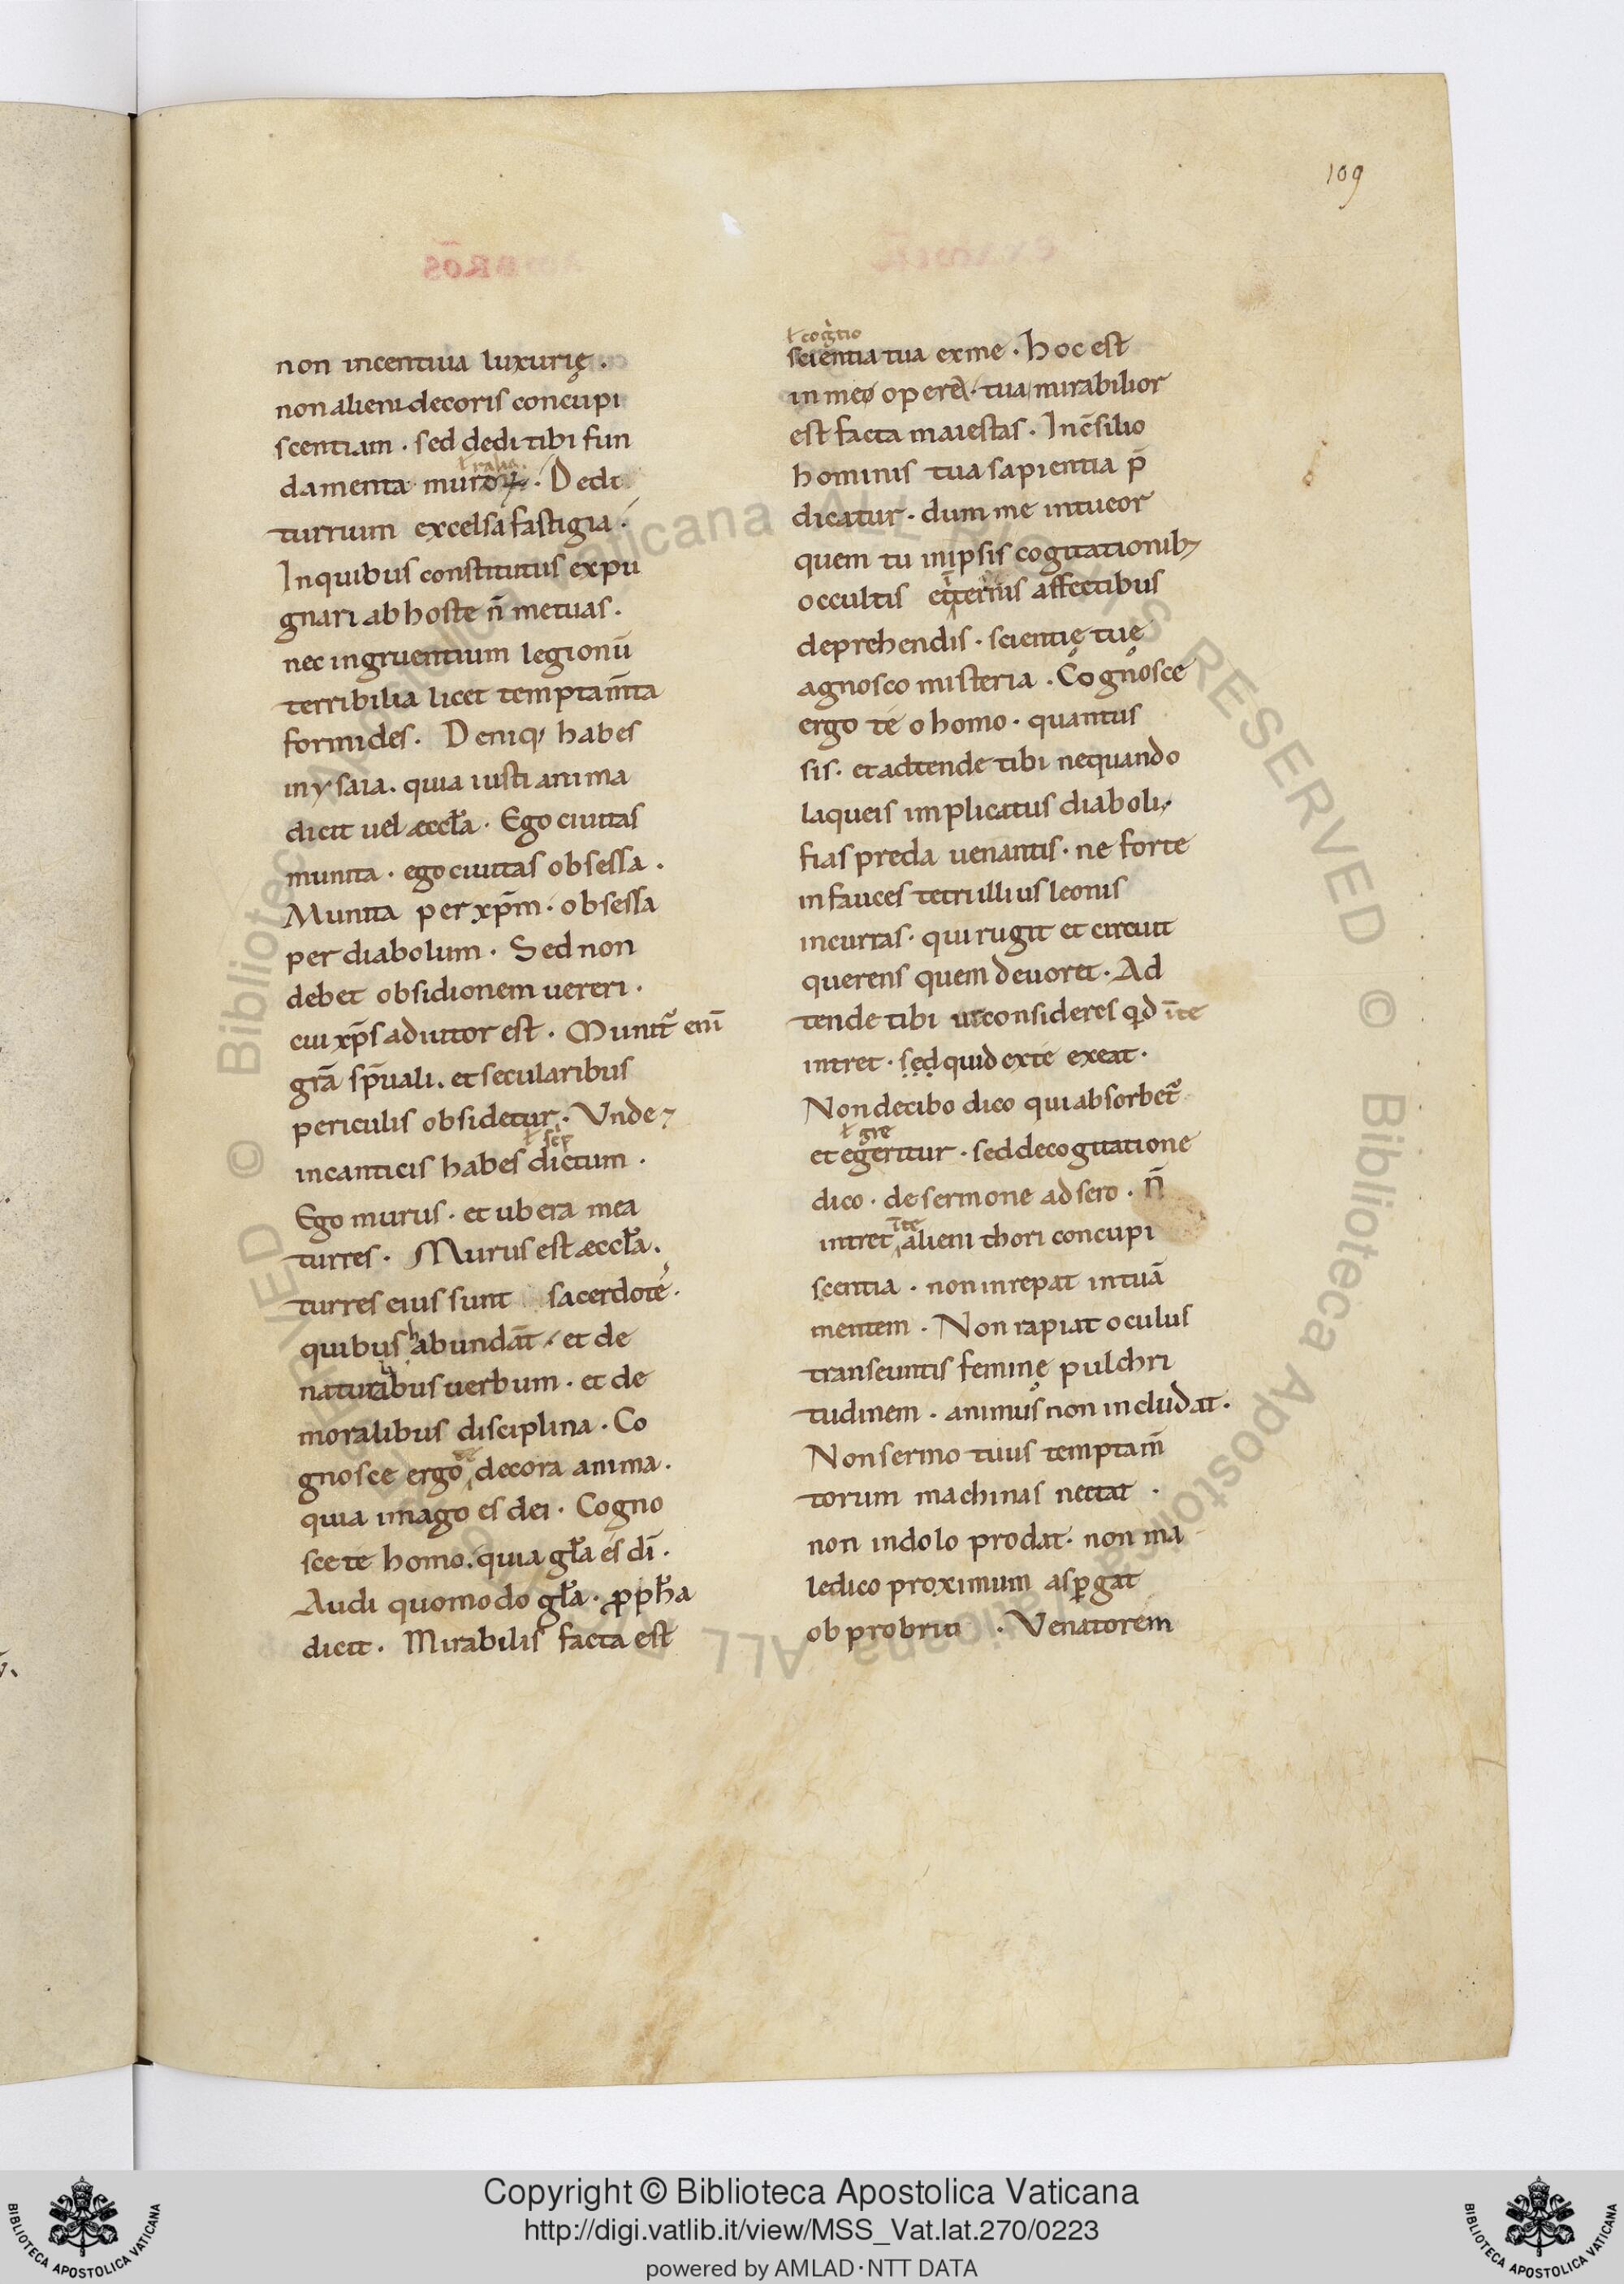 109
non incentiua luxurię .
non alieni decoris concupi
scentiam . sed dedi tibi fun
ł ralia.
damenta muroꝝ . Dedi
turrium excelsa fastigia .
In quibus constitutus expu
gnari ab hoste n̄ metuas .
nec ingruentium legionū
terribilia licet temptam̄ta
formides . Deniq; habes
in ysaia . quia iusti anima
dicit uel æccl̄a . Ego ciuitas
munita . ego ciuitas obsessa .
Munita per xp̄m . obsessa
per diabolum . Sed non
debet obsidionem uereri .
cui xp̄s adiutor est . Munit᷑ eni̅
gr̄a sp̄uali . et secularibus
periculis obsidetur . Vnde ⁊
ł scrip
in canticis habes dictum .
Ego murus . et ubera mea
turres . Murus est æccl̄a .
turres eius sunt sacerdote' .
h
quibus abundat̄ . et de
naturalibus uerbum . et de
moralibus disciplina . Co
gnosce ergo te decora anima .
quia imago es dei . Cogno
sce te homo . quia gl̄a es dī .
Audi quomodo gl̄a . ꝓph̄a
dicit . Mirabilis facta est
ł cognitio
scientia tua ex me . hoc est
in meo opere . tua mirabilior
est facta maiestas . In c̄silio
hominis tua sapientia p̄
dicatur . dum me intueor
quem tu in ipsis cogitationib;
occultis et īternis affectibus
deprehendis . scientię tuę
agnosco misteria . Cognosce
ergo te o homo . quantus
sis . et adtende tibi nequando
laqueis implicatus diaboli .
fias preda uenantis . ne forte
in fauces tetri illius leonis
incurras . qui rugit et circuit
querens quem deuoret . Ad
tende tibi ut consideres qd īte
intret . sed quid ex te exeat .
Non de cibo dico qui absorbet᷑
ł gre
et egeritur . sed de cogitatione
dico . de sermone adsero . n̄
īte
intret alieni thori concupi
scentia . non inrepat in tuā
mentem . Non rapiat oculus
transeuntis feminę pulchri
tudinem . animus non includat .
Non sermo tuus temptam̄
torum machinas nectat .
non in dolo prodat . non ma
ledico proximum asꝑgat
obprobrio . Venatorem
Copyright © Biblioteca Apostolica Vaticana
http://digi.vatlib.it/view/MSS_Vat.lat.270/0223
powered by AMLAD·NTT DATA
BIBLIOTECA APOSTOLICA VATICANA
BIBLIOTECA APOSTOLICA VATICANA